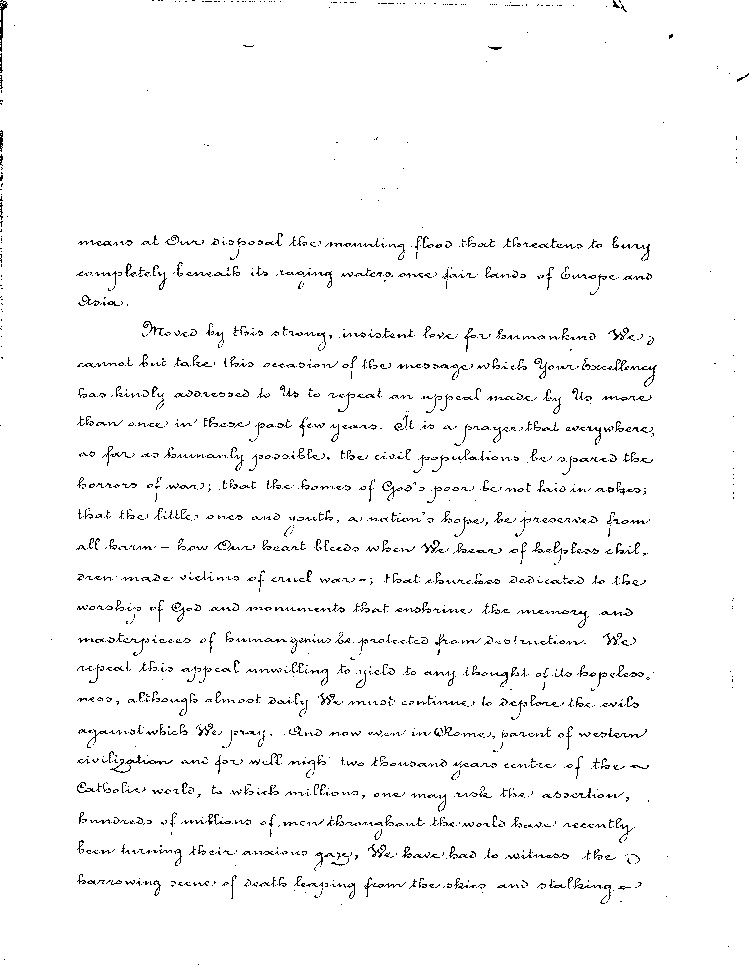 means at Our disposal the mounting flood that threatens to bury
completely beneath its raging waters once fair lands of Europe and
Asia.
Moved by this strong, insistent love for humankind We
cannot but take this occasion of the message which Your Excellency
has kindly addressed to Us to repeat an appeal made by Us more
than once in these past few years. It is a prayer that everywhere,
as far as humanly possible, the civil populations be spared the
horrors of war; that the homes of God's poor be not laid in ashes;
that the little ones and youth, a nation's hope, be preserved from
all harm - how Our heart bleeds when We hear of helpless chil-
dren made victims of cruel war -; that churches dedicated to the
worship of God and monuments that enshrine the memory and
masterpieces of human genius be protected from destruction. We
repeat this appeal unwilling to yield to any thought of its hopeless-
ness, although almost daily We must continue to deplore the evils
against which We pray. And now even in Rome, parent of western
civilization and for well nigh two thousand years centre of the
Catholic world, to which millions, one may risk the assertion,
hundreds of millions of men throughout the world have recently
been turning their anxious gaze, We have had to witness the
harrowing scene of death leaping from the skies and stalking